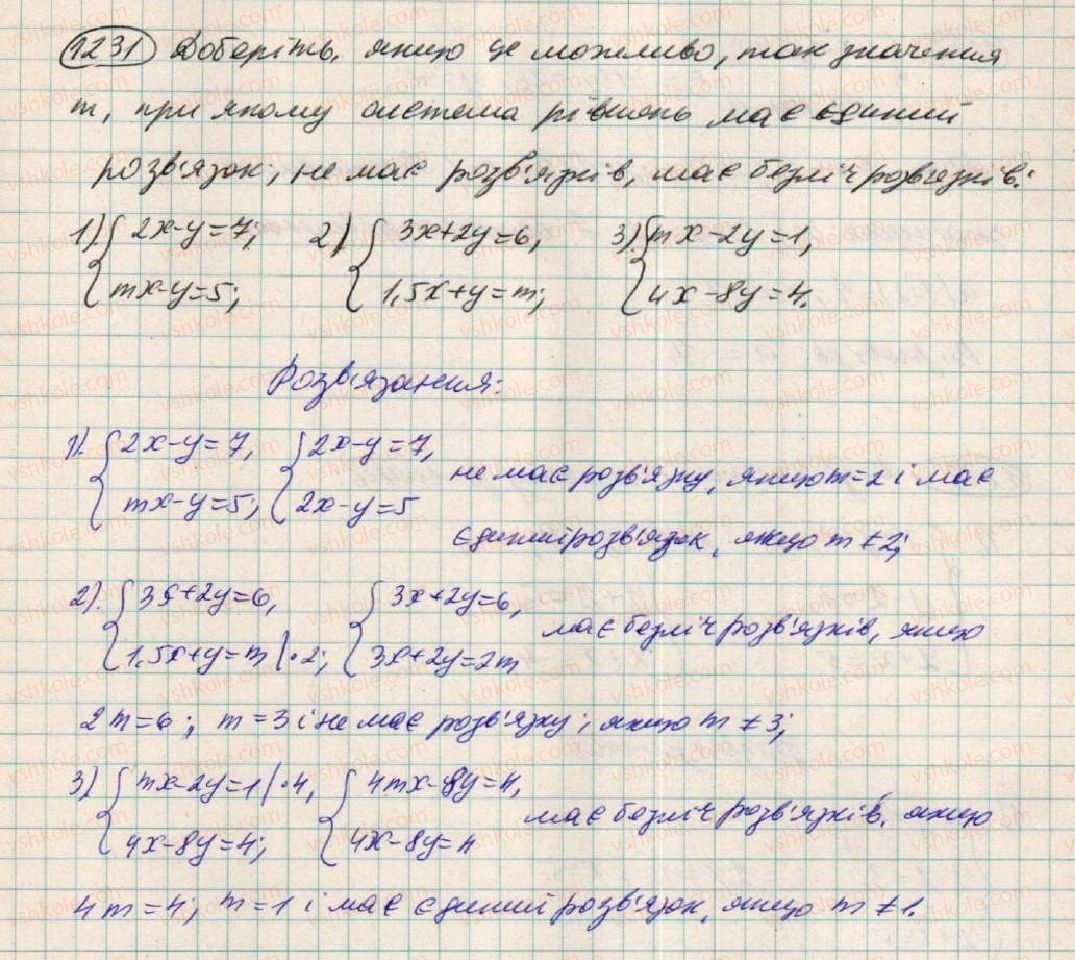 1231 Доберіть, якщо це можливо, так значення
m, при якому система рівнянь має єдиний
розв'язок; не має розв'язків, має безліч розв'язків:
1) { 2x-y=7; mx-y=5; 2) { 3x+2y=6, 1,5x+y=m; 3) { mx-2y=1, 4x-8y=4.
Розв'язання:
1). { 2x-y=7, mx-y=5; { 2x-y=7, 2x-y=5 не має розв'язку, якщо m=2 і має
єдиний розв'язок, якщо m≠2;
2). { 3x+2y=6, 1,5x+y=m |·2; { 3x+2y=6, 3x+2y=2m має безліч розв'язків, якщо
2m=6; m=3 і не має розв'язку, якщо m≠3;
3) { mx-2y=1 |·4, 4x-8y=4; { 4mx-8y=4, 4x-8y=4 має безліч розв'язків, якщо
4m=4; m=1 і має єдиний розв'язок, якщо m≠1.
vshkole.com